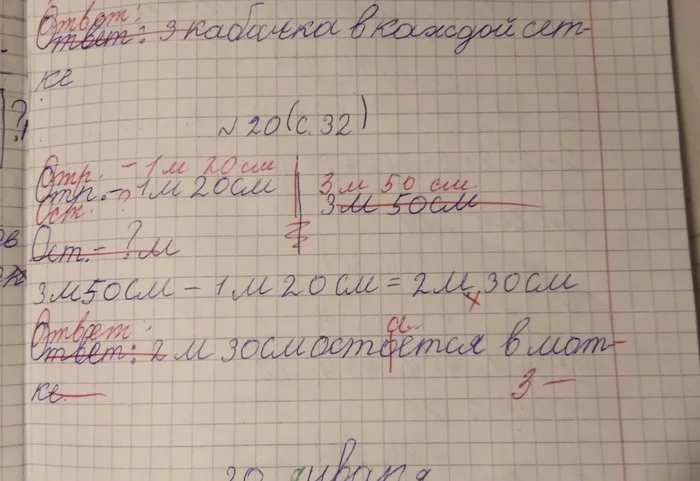 Ответ:
Ответ: 3 кабачка в каждой сет-
ке
№ 20 (с. 32)
Отр. - 1 м 20 см
Отр. - 1 м 20 см
3 м 50 см
3 м 50 см
Ост. ?
Ост. - ? м
3 м 50 см - 1 м 20 см = 2 м 30 см
Ответ:
Ответ: 2 м 30 см остоётся в мот-
а
ке.
3 -
20 января